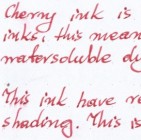 Cherry ink is
inks, this mean
watersoluble dy
This ink have re
shading. This is